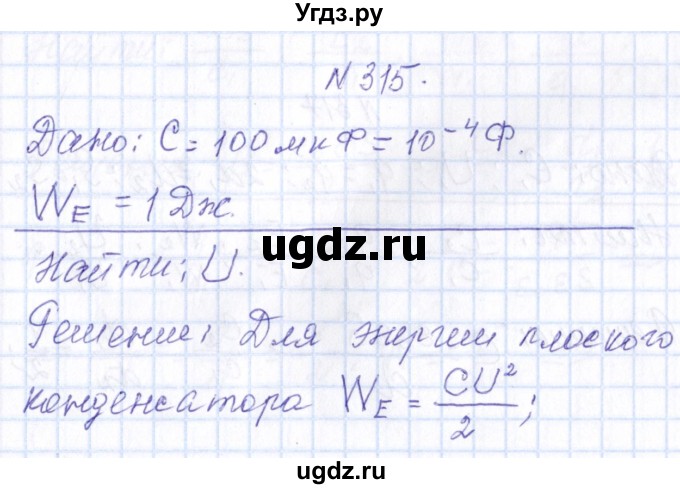 Угдз.ру
N 315.
Дано: C = 100 мкФ = 10⁻⁴ Ф.
W_E = 1 Дж.
ugdz.ru
Найти: U.
Решение: Для энергии плоского
конденсатора W_E = CU²/2;
ugdz.ru